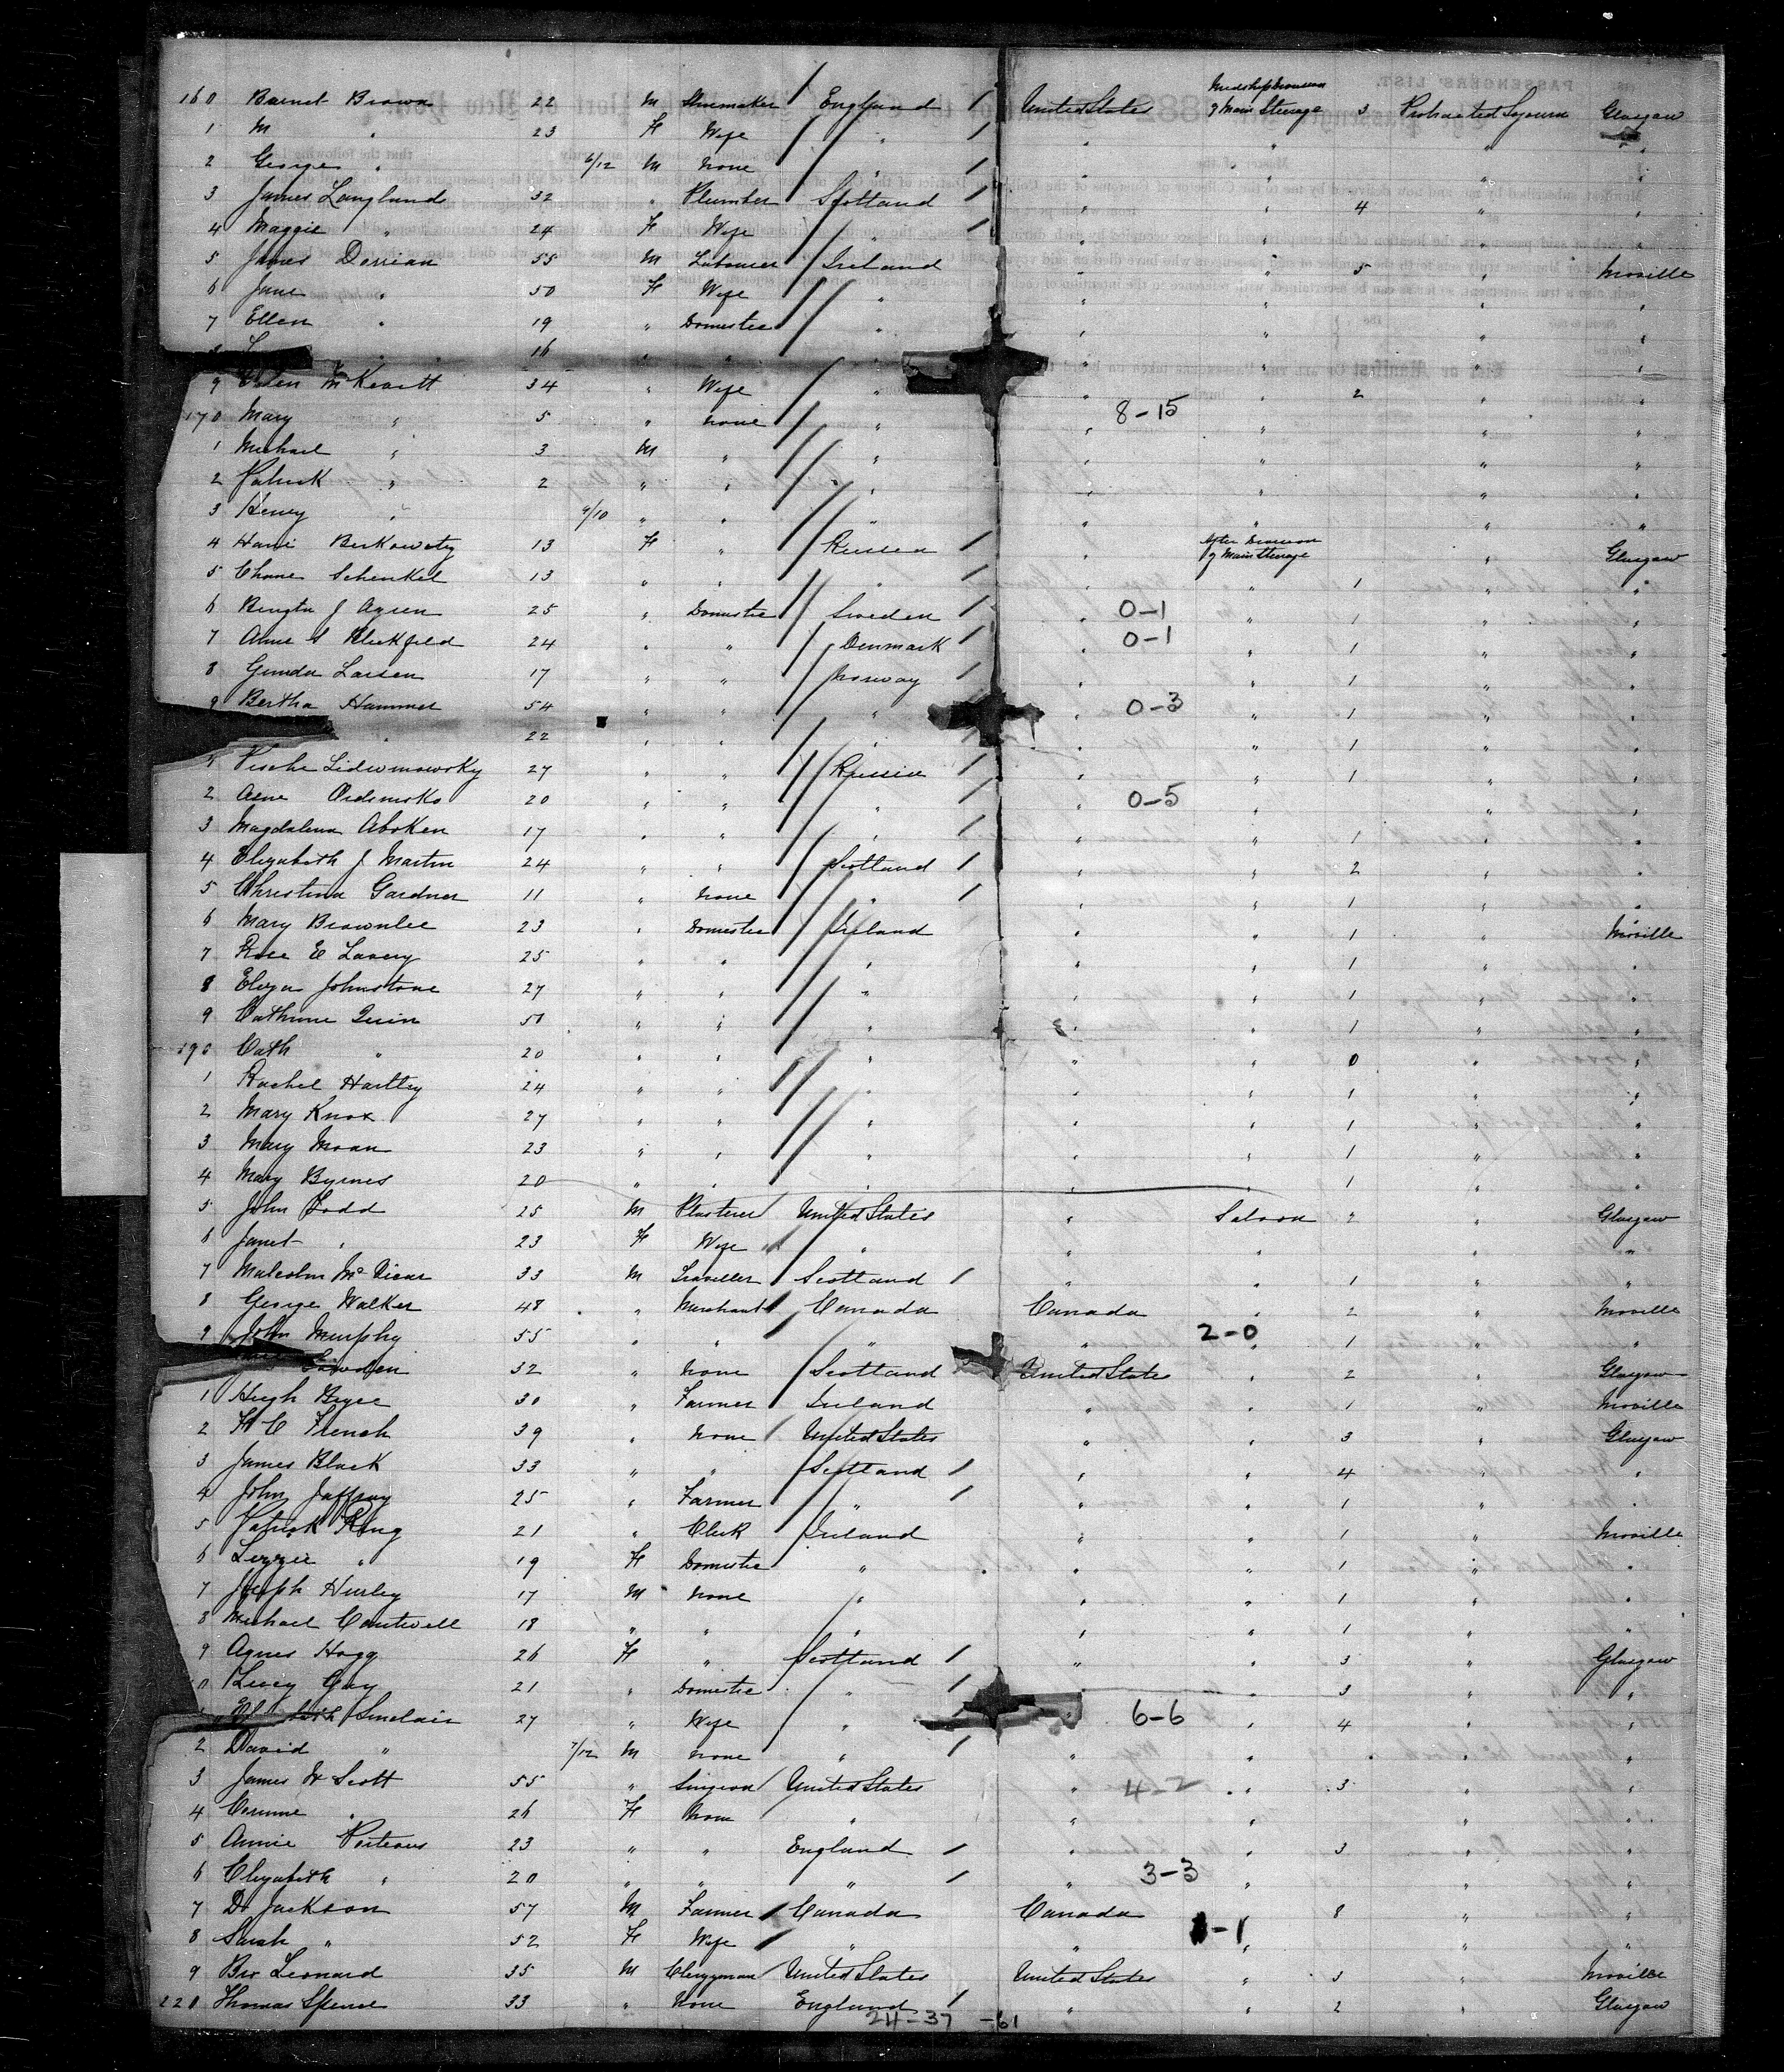 160 Barnet Brown 22 M Shoemaker England 1 United States Midship Division of Main Steerage 3 Protracted Sojourn Glasgow
1 M " 23 F Wife " 1 " " " "
2 George " 6/12 M None " 1 " " " "
3 James Langlund 32 " Plumber Scotland 1 " " 4 " "
4 Maggie " 24 F Wife " 1 " " " "
5 James Derrian 55 M Labourer Ireland " " 5 " Moville
6 Jane " 50 F Wife " " " " "
7 Ellen " 19 " Domestic " " " " "
16 " " " " " " "
9 McKevitt 34 " Wife " " " 2 " "
170 Mary " 5 " None " " 8-15 " " "
1 Michael " 3 M " " " " " "
2 Patrick " 2 " " " " " " "
3 Henry " 9/10 " " " " " " "
4 Hani Berkowitz 13 F " Russia 1 " After Division of Main Steerage " Glasgow
5 Chane Schenkel 13 " " " 1 " " 1 " "
6 Bengta J Agren 25 " Domestic Sweden 1 " 0-1 " 1 " "
7 Anne S Blickfeld 24 " " Denmark 1 " 0-1 " 1 " "
8 Gunda Larsen 17 " " Norway 1 " " 1 " "
9 Bertha Hammer 54 " " " " 0-3 " 1 " "
22 " " " " " 1 " "
Lidwinowsky 27 " " Russia 1 " " 1 " "
2 20 " " " 1 " 0-5 " " "
3 Magdalena Aboken 17 " " " 1 " " 1 " "
4 Elizabeth J Martin 24 " " Scotland 1 " " 2 " "
5 Christina Gardner 11 " None " 1 " " 1 " "
6 Mary Brownlee 23 " Domestic Ireland " " 1 " Moville
7 Rose E Lavery 25 " " " " " 1 " "
8 Eliza Johnstone 27 " " " " " 1 " "
9 Cathrine Quin 50 " " " " " 1 " "
190 Cath " 20 " " " " " 0 " "
1 Rachel Hartley 24 " " " " " 1 " "
2 Mary Knox 27 " " " " " 1 " "
3 Mary Moan 23 " " " " " 1 " "
4 Mary Byrnes 20 " " " " " 1 " "
5 John Todd 25 M Plasterer United States " Saloon 2 " Glasgow
6 Janet " 23 F Wife " " " " "
7 Malcolm McVicar 33 M Traveller Scotland 1 " " 1 " "
8 George Walker 48 " Merchant Canada Canada " 2 " Moville
9 John Murphy 55 " " " " 2-0 " 1 " "
32 " None Scotland United States " 2 " Glasgow
1 Hugh 30 " Farmer Ireland " " 1 " Moville
2 H C French 39 " None United States " " 3 " Glasgow
3 James Black 33 " " Scotland 1 " " 4 " "
4 John Jaffray 25 " Farmer " 1 " " 1 " "
5 Patrick King 21 " Clerk Ireland " " 1 " Moville
6 Lizzie " 19 F Domestic " " " 1 " "
7 Joseph Hurley 17 M None " " " 1 " "
8 Michael Cantwell 18 " " " " " 1 " "
9 Agnes Hogg 26 F " Scotland 1 " " 3 " Glasgow
0 Lucy Gay 21 " Domestic " 1 " " 3 " "
Sinclair 27 " Wife " 6-6 " 4 " "
2 David " 7/12 M None " 1 " " " "
3 James W Scott 55 " Surgeon United States " 4-2 " 3 " "
4 Corinne " 26 F None " " " " "
5 Annie Porteous 23 " " England 1 " " 3 " "
6 Elizabeth " 20 " " " 1 " 3-3 " " "
7 D Jackson 57 M Farmer Canada Canada " 8 " "
8 Sarah " 52 F Wife " " 1-1 " " "
9 Bro Leonard 35 M Clergyman United States United States " 3 " Moville
220 Thomas Spence 33 " None England 1 " " 2 " Glasgow
24-37 -61